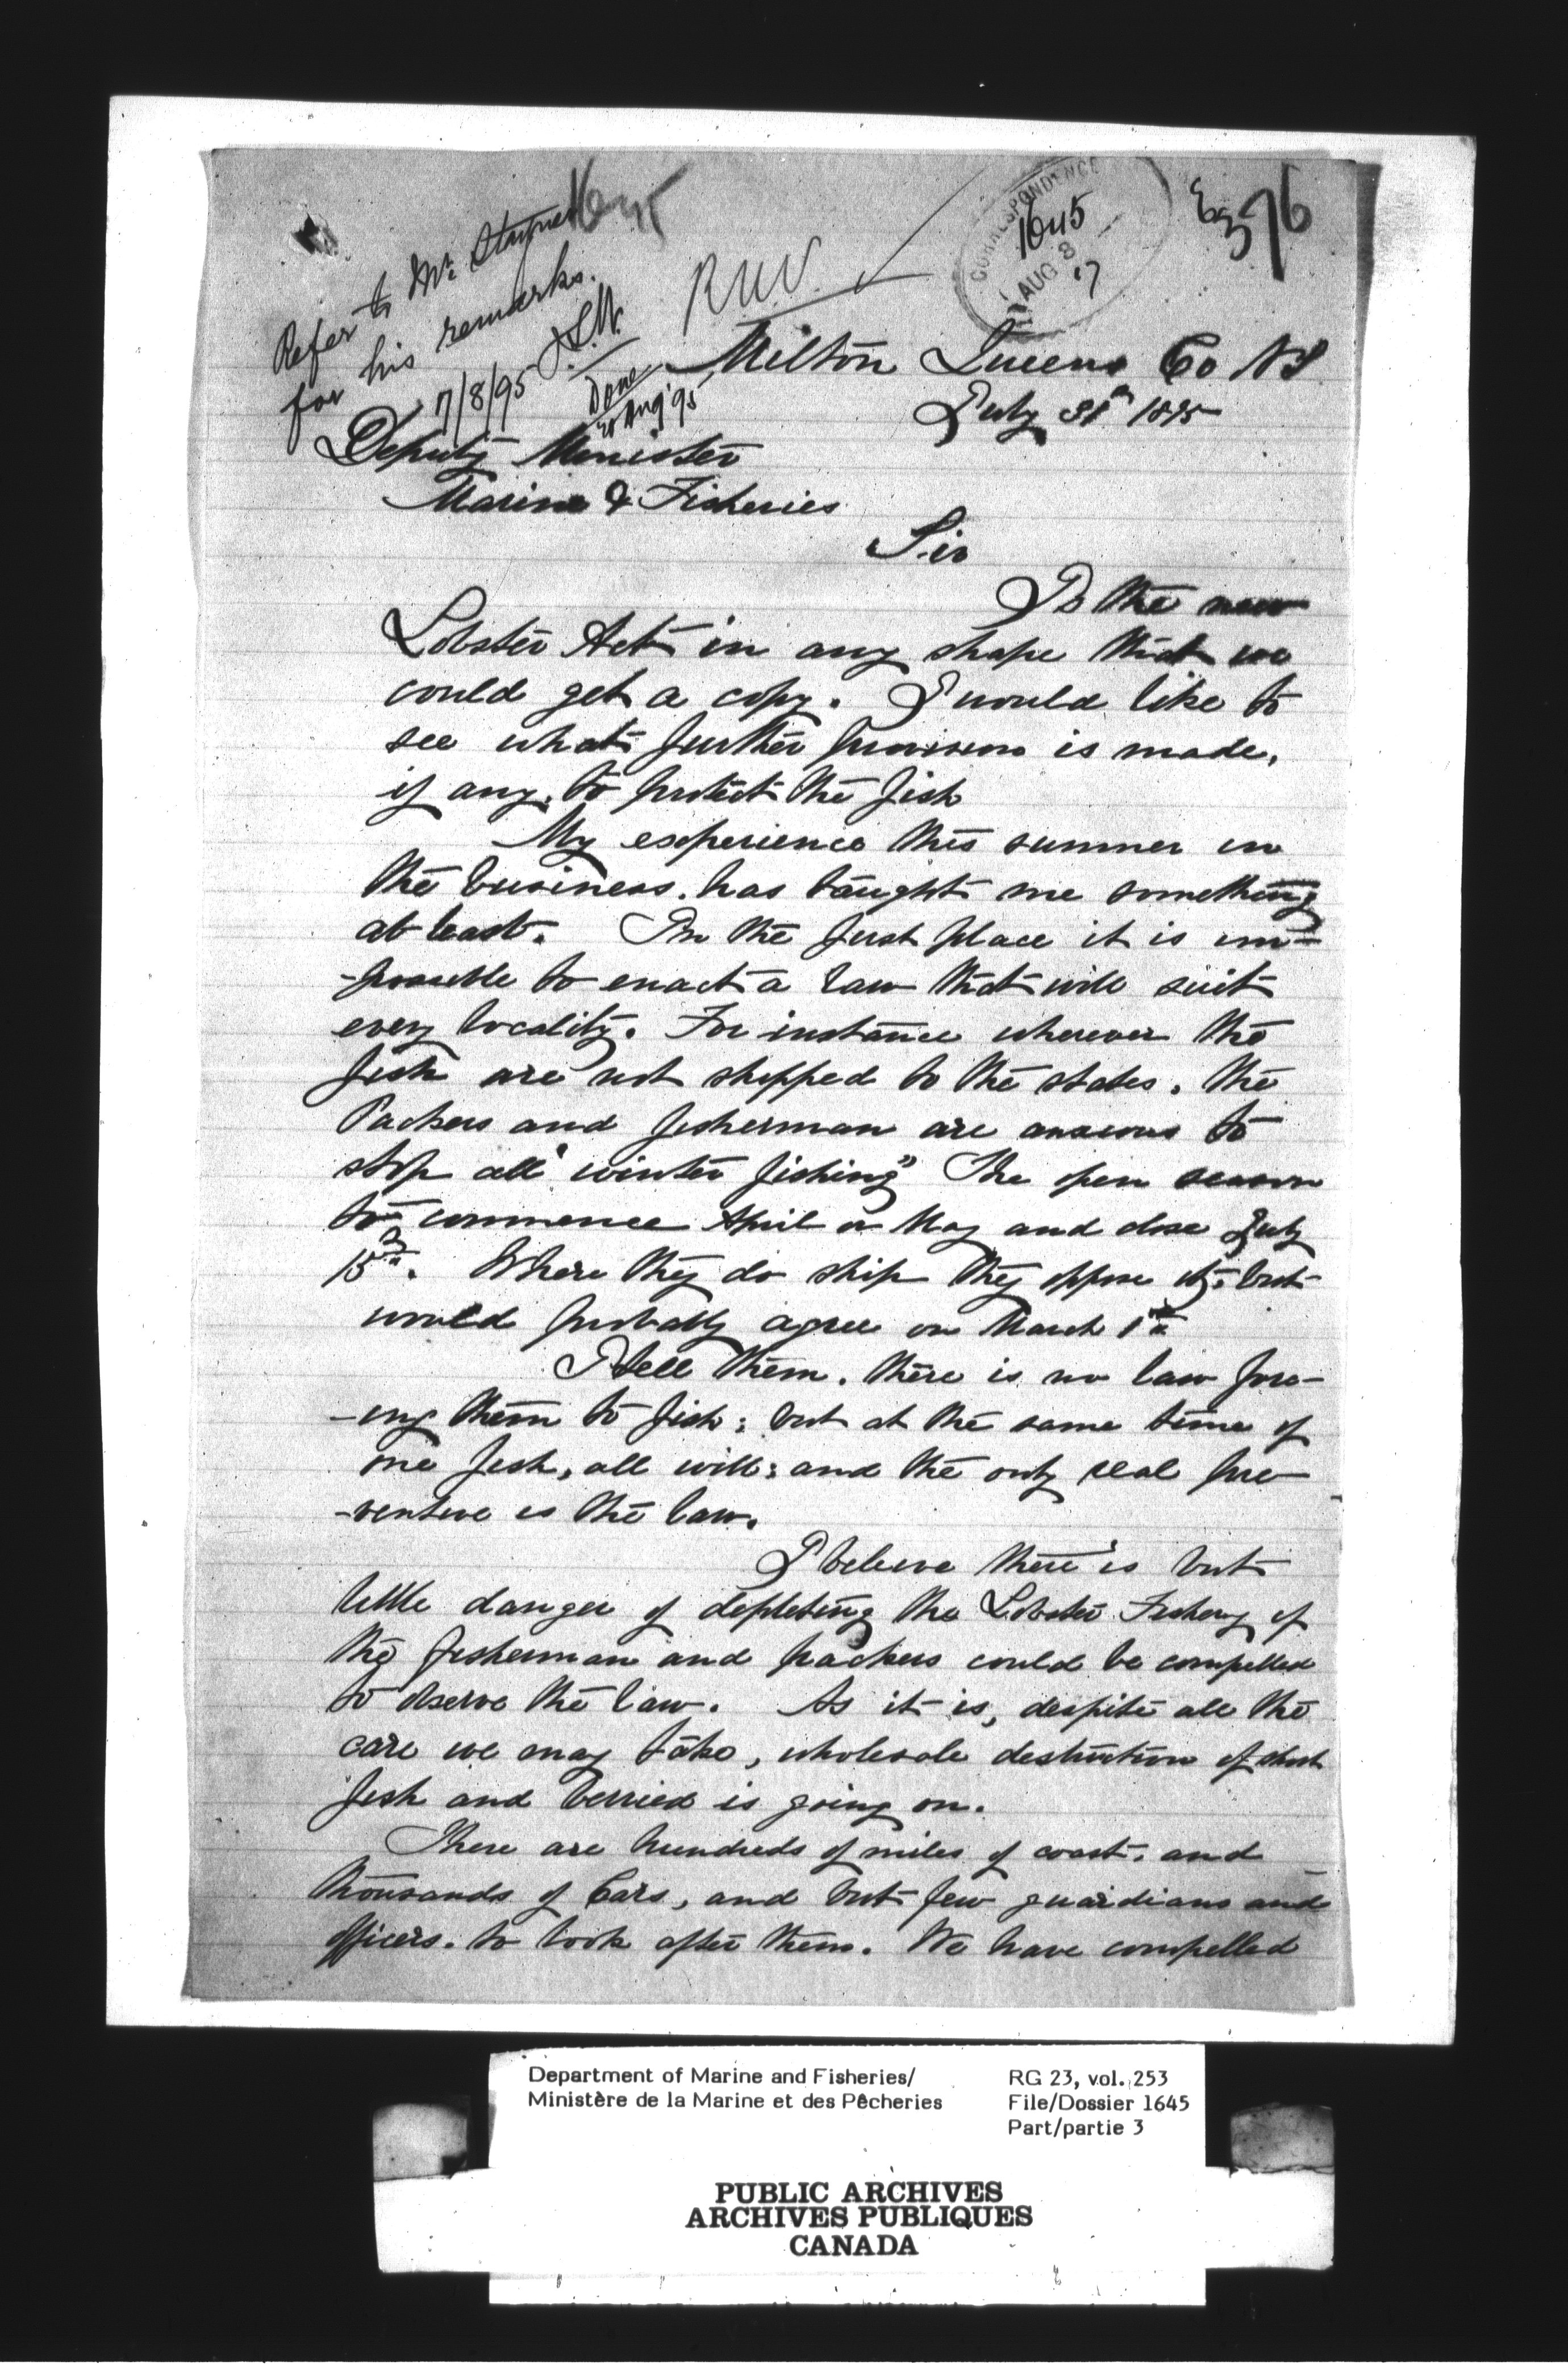 1645
Refer to Mr
for his remarks.
7/8/95
Done
Aug '95
CORRESPONDENCE
1645
AUG 8
376
Milton Queens Co NS
July 31st 1895
Deputy Minister
Marine & Fisheries
Sir
Is the new
Lobster Act in any shape that we
could get a copy. I would like to
see what further provision is made,
if any, to protect the fish
My experience this summer in
the business, has taught me something
at least. In the first place it is im-
-possible to enact a law that will suit
every locality. For instance wherever the
fish are not shipped to the states, the
Packers and fisherman are anxious to
stop all "winter fishing" The open season
to commence April or May and close July
15th. Where they do ship they oppose it; but
would probably agree on March 1st
I tell them, there is no law forc-
-ing them to fish; but at the same time if
one fish, all will; and the only real pre-
-ventive is the law.
I believe there is but
little danger of depleting the Lobster Fishery if
the fisherman and packers could be compelled
to observe the law. As it is, despite all the
care we may take, wholesale destruction of short
fish and berried is going on.
There are hundreds of miles of coast, and
thousands of Cars, and but few guardians and
officers, to look after them. We have compelled
Department of Marine and Fisheries/
Ministère de la Marine et des Pêcheries
RG 23, vol. 253
File/Dossier 1645
Part/partie 3
PUBLIC ARCHIVES
ARCHIVES PUBLIQUES
CANADA